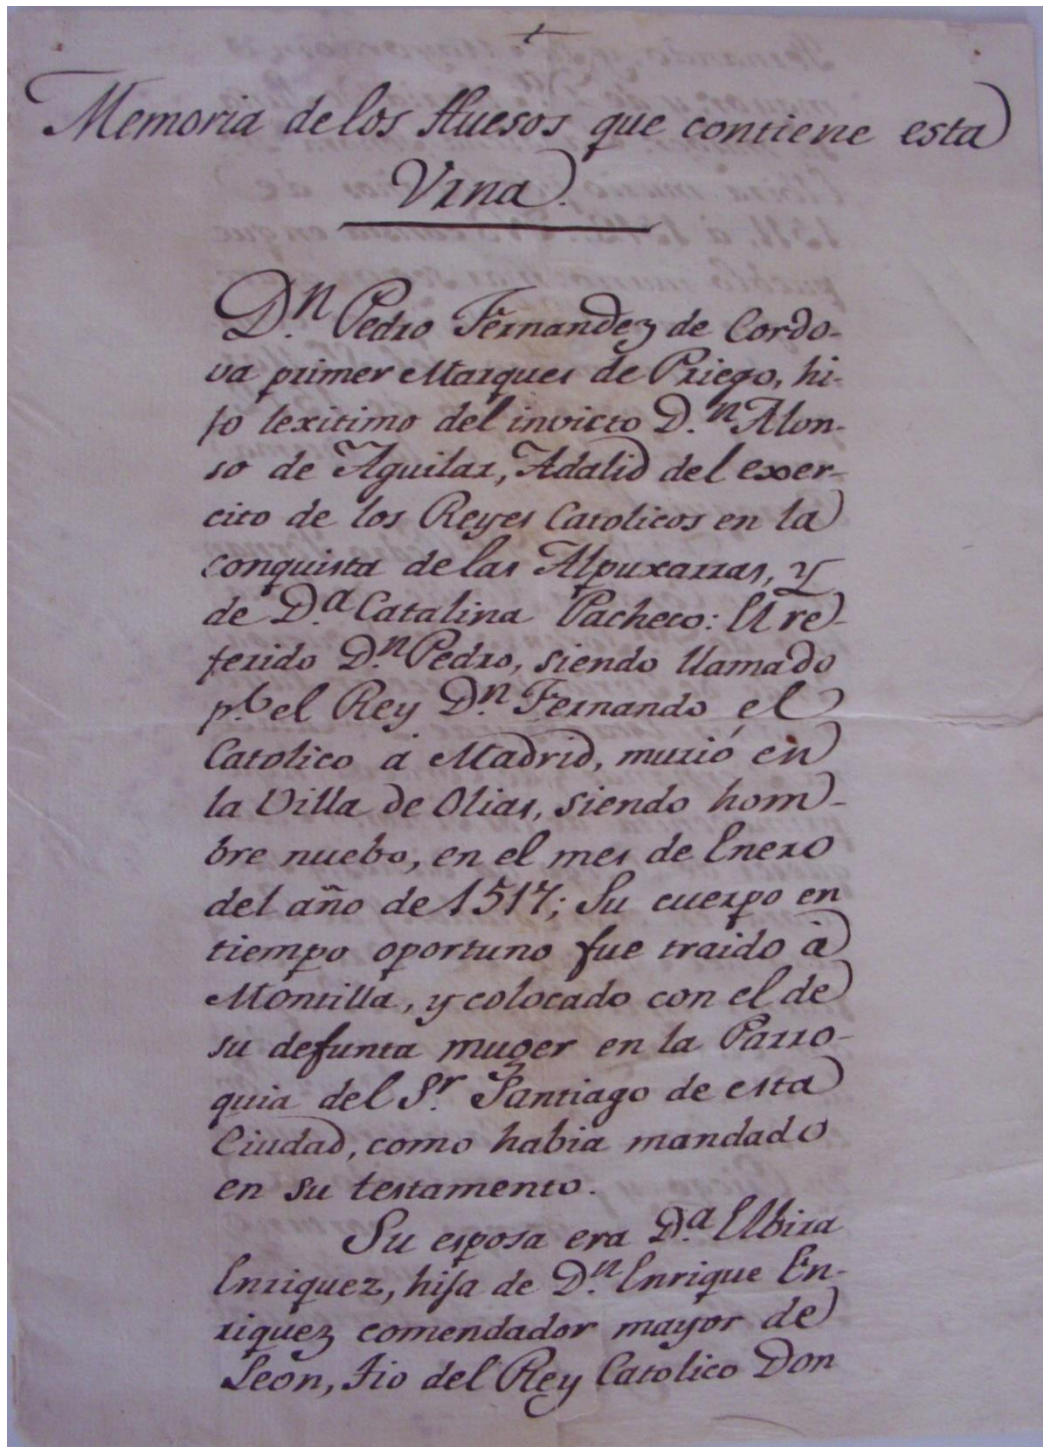 Memoria de los Huesos que contiene esta
Vrna.
D.n Pedro Fernandez de Cordo-
va primer Marques de Priego, hi-
jo lexitimo del invicto D.n Alon-
so de Aguilar, Adalid del exer-
cito de los Reyes Catolicos en la
conquista de las Alpuxarras, y
de D.a Catalina Pacheco: El re-
ferido D.n Pedro, siendo llamado
p.r el Rey D.n Fernando el
Catolico á Madrid, murió en
la Villa de Olias, siendo hom-
bre nuebo, en el mes de Enero
del año de 1517; Su cuerpo en
tiempo oportuno fue traido à
Montilla, y colocado con el de
su defunta muger en la Parro-
quia del S.r Santiago de esta
Ciudad, como habia mandado
en su testamento.
Su esposa era D.a Elbira
Enriquez, hija de D.n Enrique En-
riquez comendador mayor de
Leon, tio del Rey Catolico Don